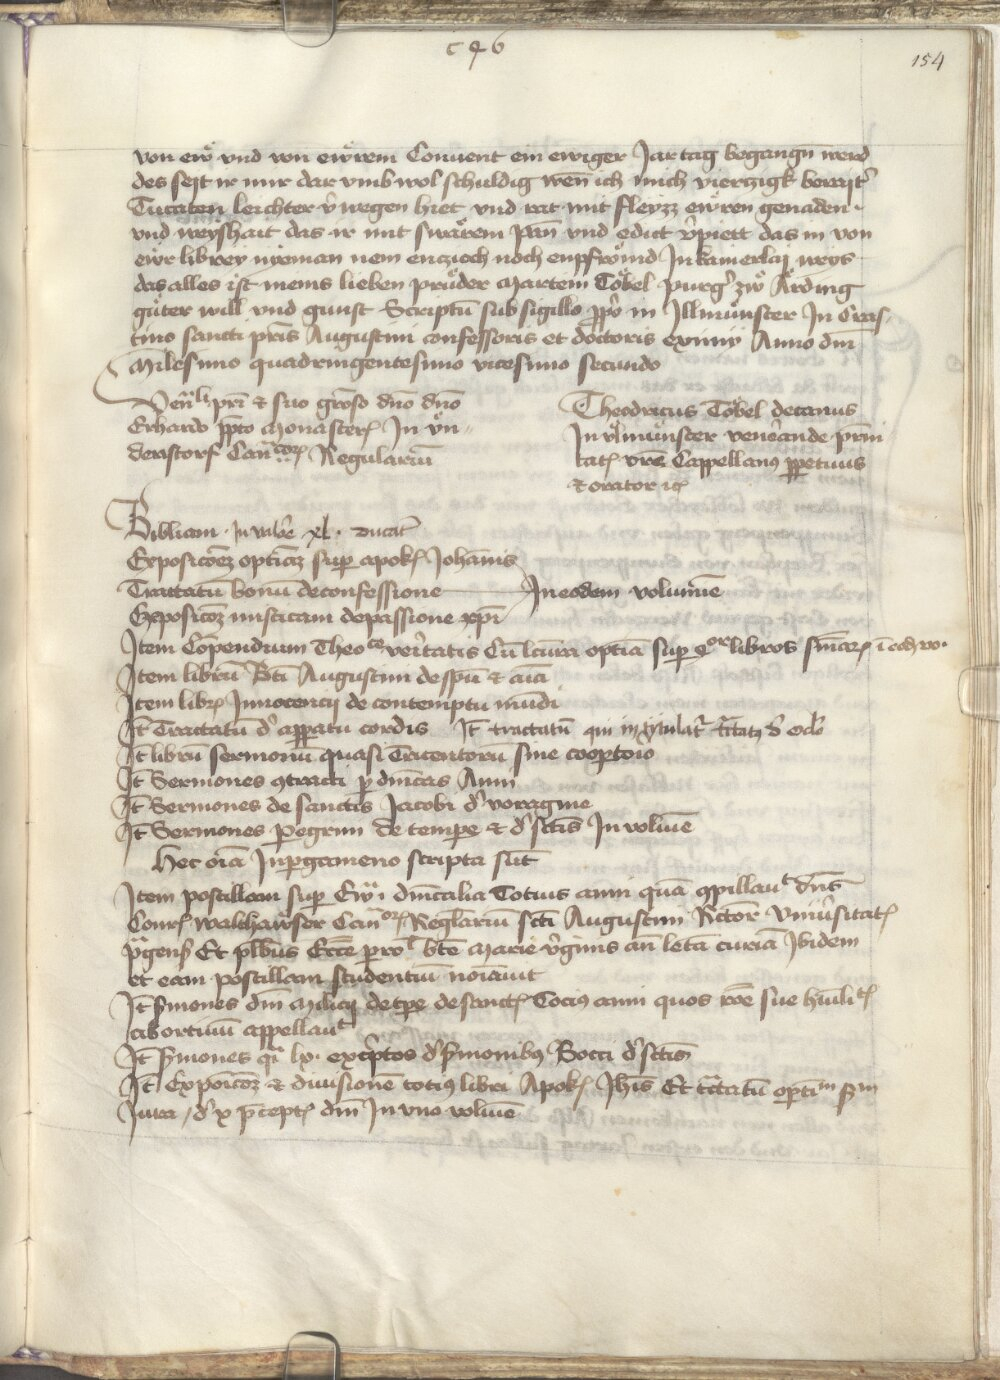 c46
154
von ew̃ vnd von ewrem Conuent ein ewiger Jartag begangn werd
des seyt ir mir dar vmb wol schuldig wen̄ ich mich vierczigk berayt
Tucaten leichter v̓wegen hiet vnd rat mit fleyzz ewren genaden
vnd weyshait das ir mit swarem pan̄ vnd edict v̓piett das in von
ewr librey nyeman nem encziech noch enpfrömd In kainerlaj weys
das alles ist meins lieben prüder Martein Töbel purg̓ zw̃ Ärding
güter will vnd gunst Scriptū sub sigillo pp̃o in Illmünster In Cras
tino sancti pr̃is Augustini confessoris et doctoris eximij Anno dn̄i
Milesimo quadringentesimo vicesimo secundo
Ven̄li pr̃i & suo gr̃oso dn̄o dn̄o
Erhardo pp̃to Monaster̃ In vn̄
derstorf Can̄cor̃ Regulariū
Theodricus Töbel decanus
In ylmünster ven̓ande pr̄ni
tat̃ vr̄e Cappellanꝰ ppetuus
& orator &c̃
Bibliam · In valōe xl · ducat̓
Exposicōez opticāz sup apok̃ Johānis
Tractatū bonū de confessione In eodem volumīe
Exposicōz misticam de passione xp̄i
Item Cōpendium Theoce ver̓itatis Cū lc̄ura opticā sup qor libros sn̄iar̃ ī eod vo·
Item librū Bt̄i Augustini de spū & aīa
Item libr̃ Innocencij de contemptu mūdi
Jt̄ Tractatū d̓ apparatu cordis Jt̄ tractatū qui intytulat̓
Jt̄ librū sermonū quasi Tricentorū sine coopto͞io
Jt̄ Sermones ꝯtracti p dn̄icas Anni
Jt̄ Sermones de sanctis Jacobi d̓ voragine
Jt̄ Sermones Peregrini de tempe & d̓ sc̄tis In volum̄e
Hec oīa In pergameno scripta sūt
Item postillam sup Ew̄ᵃ· dn̄icalia Totius anni quā ꝯpillaut dn̄s
Conr̃ walthawser Can̄or̃ Reglariū sc̄ti Augustini Rc̄tor Vniu̓sitat̃
p̄gens̃ Et plb̄us Ecc̄e paro bt̄e Marie v̓ginis an̄ letā curiā Jbidem
et eam postillam studentiū noīauit
Jt̄ s̓mones dn̄i Milicij de tpe de sanct̃ Tocius anni quos rōe sue hūilit̃
abortiuū appellaut
Jt̄ S̓mones q̓ lx· excptos d̓ s̓monibꝰ Bocci d̓ sc̄tis
Jt̄ Expoīcōz & diuisionē totiꝰ libri Apok̃ Joh̄is Et tc̄atū optim
Jura / d̓ x p̄cept̃ dn̄i In vno volum̄e